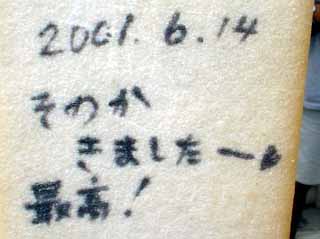 2001.6.14
そのか
きました→
最高!